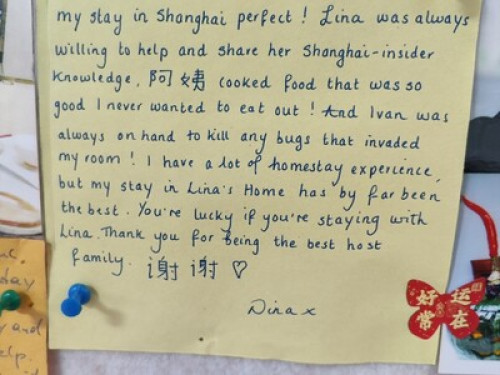 my stay in Shanghai perfect! Lina was always
willing to help and share her Shanghai-insider
knowledge. 阿姨 cooked food that was so
good I never wanted to eat out! And Ivan was
always on hand to kill any bugs that invaded
my room! I have a lot of homestay experience,
but my stay in Lina's Home has by far been
the best. You're lucky if you're staying with
Lina. Thank you for being the best host
family. 谢谢 ♡
Dina x
day
and
elp
好运
常在